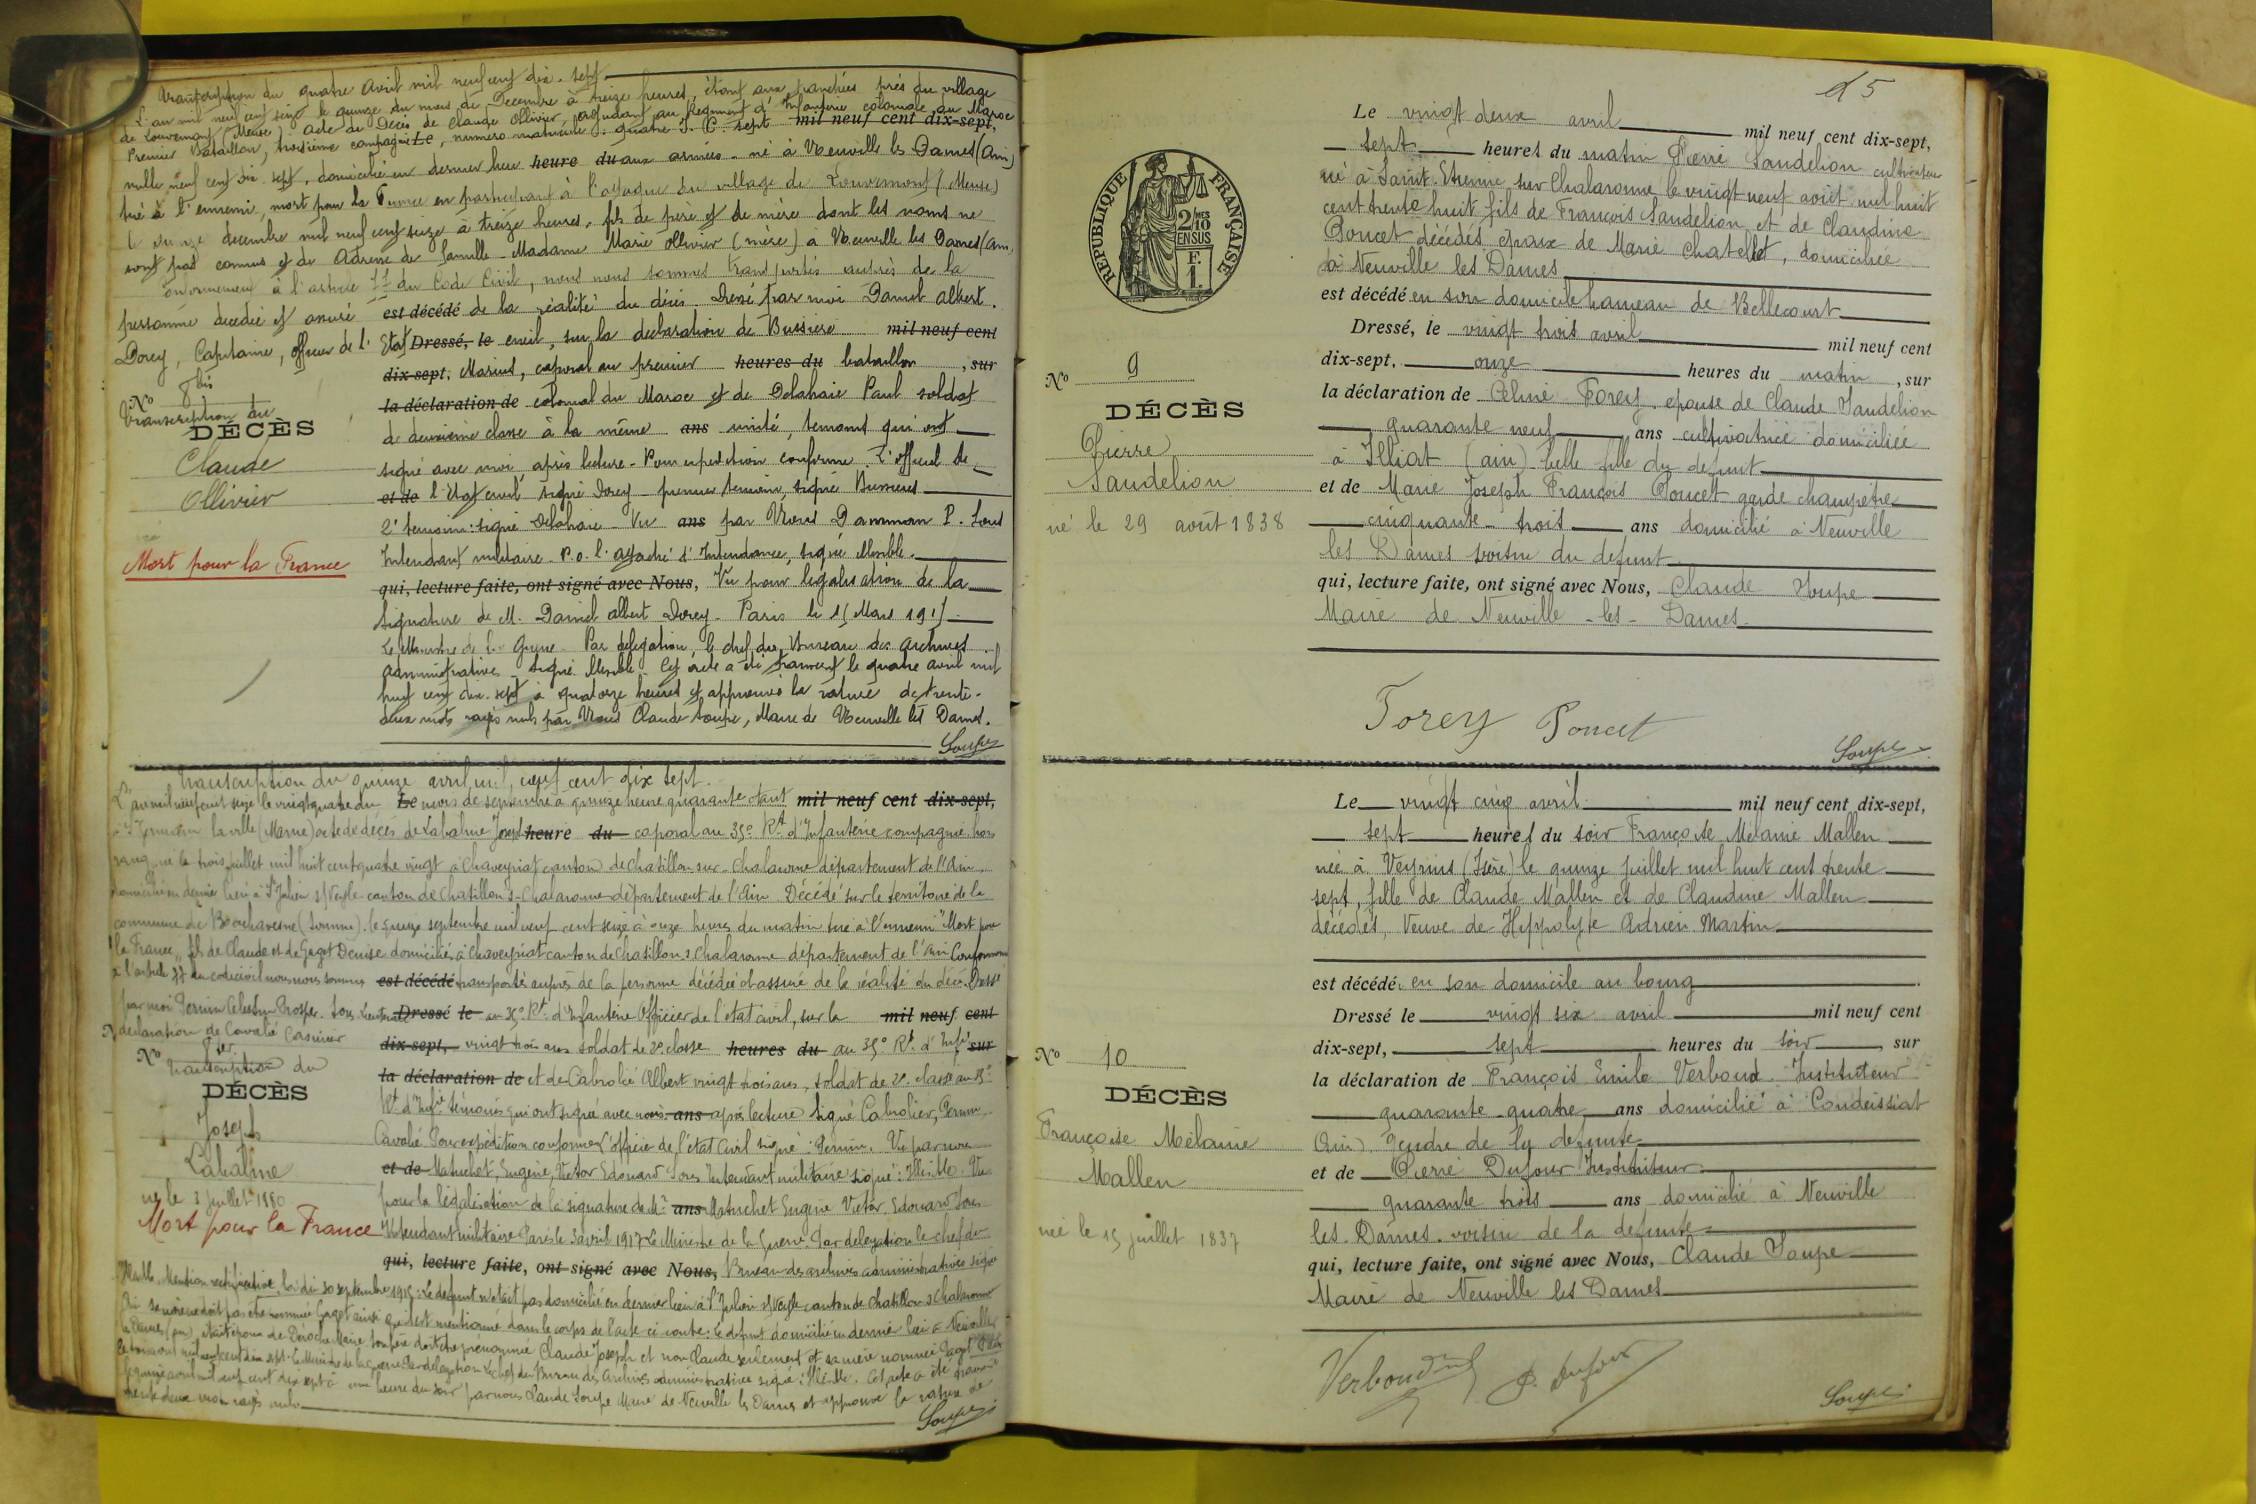 Transcription du quatre avril mil neuf cent dix-sept
L'an mil neuf cent seize le quinze du mois de Decembre à treize heures, étant aux tranchées près du village
de Louvemont (Meuse) acte de Décès de Claude Ollivier, adjudant au Régiment d'Infanterie coloniale du Maroc
Premier Bataillon, troisième compagnie Le, numéro matricule: quatre mil neuf cent dix-sept,
domicilié en dernier lieu heure du aux armées - né à Neuville les Dames (Ain)
tué à l'ennemi, mort pour la France en participant à l'attaque du village de Louvemont (Meuse)
le quinze decembre mil neuf cent seize à treize heures, fils de père et de mère dont les noms ne
sont pas connus et de Adresse de famille - Madame Marie Ollivier (mère) à Neuville les Dames (Ain,
Conformément à l'article 77 du Code Civil, nous nous sommes transportés auprès de la
personne décédée et assuré est décédé de la réalité du décès. Dressé par moi Daniel Albert
Dorey, Capitaine, officier de l' Etat Dressé, le civil, sur la declaration de Bussiere mil neuf cent
dix-sept, Marius, caporal au premier heures du bataillon, sur
la déclaration de colonial du Maroc et de Delahaie Paul soldat
de deuxième classe à la même ans unité, temoins qui ont
signé avec moi, après lecture - Pour expedition conforme L'officier de
et de l'Etat civil, signé Dorey - premier temoin, signé Bussiere
2e temoin: signé Delahaie - Vu ans par Nous Damman P. Sous
Intendant militaire P.o. l'attaché d'Intendance, signé illisible.
qui, lecture faite, ont signé avec Nous, Vu pour legalisation de la
signature de M. Daniel Albert Dorey - Paris le Mars 1917
Le Ministre de la Guerre Par délégation, le chef du Bureau des archives
administratives signé illisible. Cet acte a été transcrit le quatre avril mil
neuf cent dix-sept à quatorze heures et approuvé la rature de trente-
deux mots rayés nuls par Nous Claude Soupe, Maire de Neuville les Dames.
Soupe
No 8 bis
Transcription du
DÉCÈS
Claude
Ollivier
Mort pour la France
Transcription du quinze avril mil neuf cent dix sept.
L'an mil neuf cent seize le vingt quatre du Le mois de septembre à quinze heure quarante étant mil neuf cent dix-sept,
à St Germain la ville (Marne) acte de décès de Labalme Joseph heure du caporal au 35e Rt d'Infanterie compagnie hors
rang né le trois juillet mil huit cent quatre vingt à Chaveyriat canton de Chatillon-sur-Chalaronne département de l'Ain
domicilié en dernier lieu à St Julien s/Veyle canton de Chatillon-s-Chalaronne département de l'Ain Décédé sur le territoire de la
commune de Bouchavesne (Somme). le quinze septembre mil neuf cent seize à onze heures du matin tué à l'ennemi "Mort pour
la France", fils de Claude et de Gagot Denise domiciliés à Chaveyriat canton de Chatillon s Chalaronne département de l'Ain Conformément
à l'article 77 du code civil nous nous sommes est décédé transportés auprès de la personne décédée et assuré de la réalité du décès. Dressé
par moi Perrin Célestin Prosper. Sous Lieutenant Dressé le au 35e Rt d'Infanterie Officier de l'état civil, sur la mil neuf cent
déclaration de Cavalié Casimir dix-sept, vingt trois ans soldat de 2e classe heures du au 35e Rt d'Infie sur
la déclaration de et de Cabrolié Albert vingt trois ans, soldat de 2e classe au 35e
Rt d'Infie témoins qui ont signé avec nous ans après lecture Signé Cabrolier, Perrin
Cavalié Pour expédition conforme L'officier de l'état civil signé: Perrin. Vu par nous
et de Matuchet, Eugène, Victor Edouard Sous Intendant militaire signé: Illisible. Vu
pour la législation de la signature de Mr ans Matuchet Eugène Victor Edouard Sous
Intendant militaire Paris le 3 avril 1917 Le Ministre de la Guerre. Par délégation le chef du
qui, lecture faite, ont signé avec Nous, Bureau des archives administratives signé
Illisible. Mention rectificative, loi du 30 septembre 1915: Le defunt n'était pas domicilié en dernier lieu à St Julien s/Veyle canton de Chatillon s Chalaronne
Ain sa mère ne doit pas être nommée Gagot ainsi qu'il est mentionné dans le corps de l'acte ci-contre: le défunt domicilié en dernier lieu à Neuville
les Dames (Ain), était époux de Déroche Marie son père doit être prénommé Claude Joseph et non Claude seulement et sa mère nommée
Le trois avril mil neuf cent dix sept. Le Ministre de la guerre Par délégation Le chef du Bureau des Archives administratives signé: Illisible. Cet acte a été transcrit
le quinze avril mil neuf cent dix sept à une heure du soir par nous Claude Soupe Maire de Neuville les Dames et approuvé la rature de
trente deux mots rayés nuls.
Soupe
No 8 ter
Transcription du
DÉCÈS
Joseph
Labalme
né le 3 juillet 1880
Mort pour la France
15
RÉPUBLIQUE FRANÇAISE
2/10 MES
EN SUS
F.
1.
No 9
DÉCÈS
Pierre
Saudelion
né le 29 août 1838
Le vingt deux avril mil neuf cent dix-sept,
sept heures du matin Pierre Saudelion cultivateur
né à Saint-Etienne sur Chalaronne le vingt neuf août mil huit
cent trente huit fils de François Saudelion et de Claudine
Poncet décédés, epoux de Marie Chatellet, domicilié
à Neuville les Dames
est décédé en son domicile hameau de Bellecourt
Dressé, le vingt trois avril mil neuf cent
dix-sept, onze heures du matin, sur
la déclaration de Céline Forey, epouse de Claude Saudelion
quarante neuf ans cultivatrice domiciliée
à Illiat (Ain) belle fille du defunt
et de Marie Joseph François Poncett garde champêtre
cinquante-trois ans domicilié à Neuville
les Dames voisin du defunt
qui, lecture faite, ont signé avec Nous, Claude Soupe
Maire de Neuville-les-Dames
Forey Poncet
Soupe
No 10
DÉCÈS
Françoise Mélanie
Mallen
née le 15 juillet 1837
Le vingt cinq avril mil neuf cent dix-sept,
sept heures du soir Françoise Mélanie Mallen
née à Veyrins (Isère) le quinze juillet mil huit cent trente
sept, fille de Claude Mallen et de Claudine Mallen
décédés, Veuve de Hippolyte Adrien Martin
est décédé en son domicile au bourg
Dressé le vingt six avril mil neuf cent
dix-sept, sept heures du soir, sur
la déclaration de François Emile Verboud. Instituteur
quarante-quatre ans domicilié à Condeissiat
(Ain). Gendre de la defunte
et de Pierre Dufour Instituteur
quarante trois ans domicilié à Neuville
les Dames. voisin de la defunte
qui, lecture faite, ont signé avec Nous, Claude Soupe
Maire de Neuville les Dames
Verboud P. Dufour
Soupe